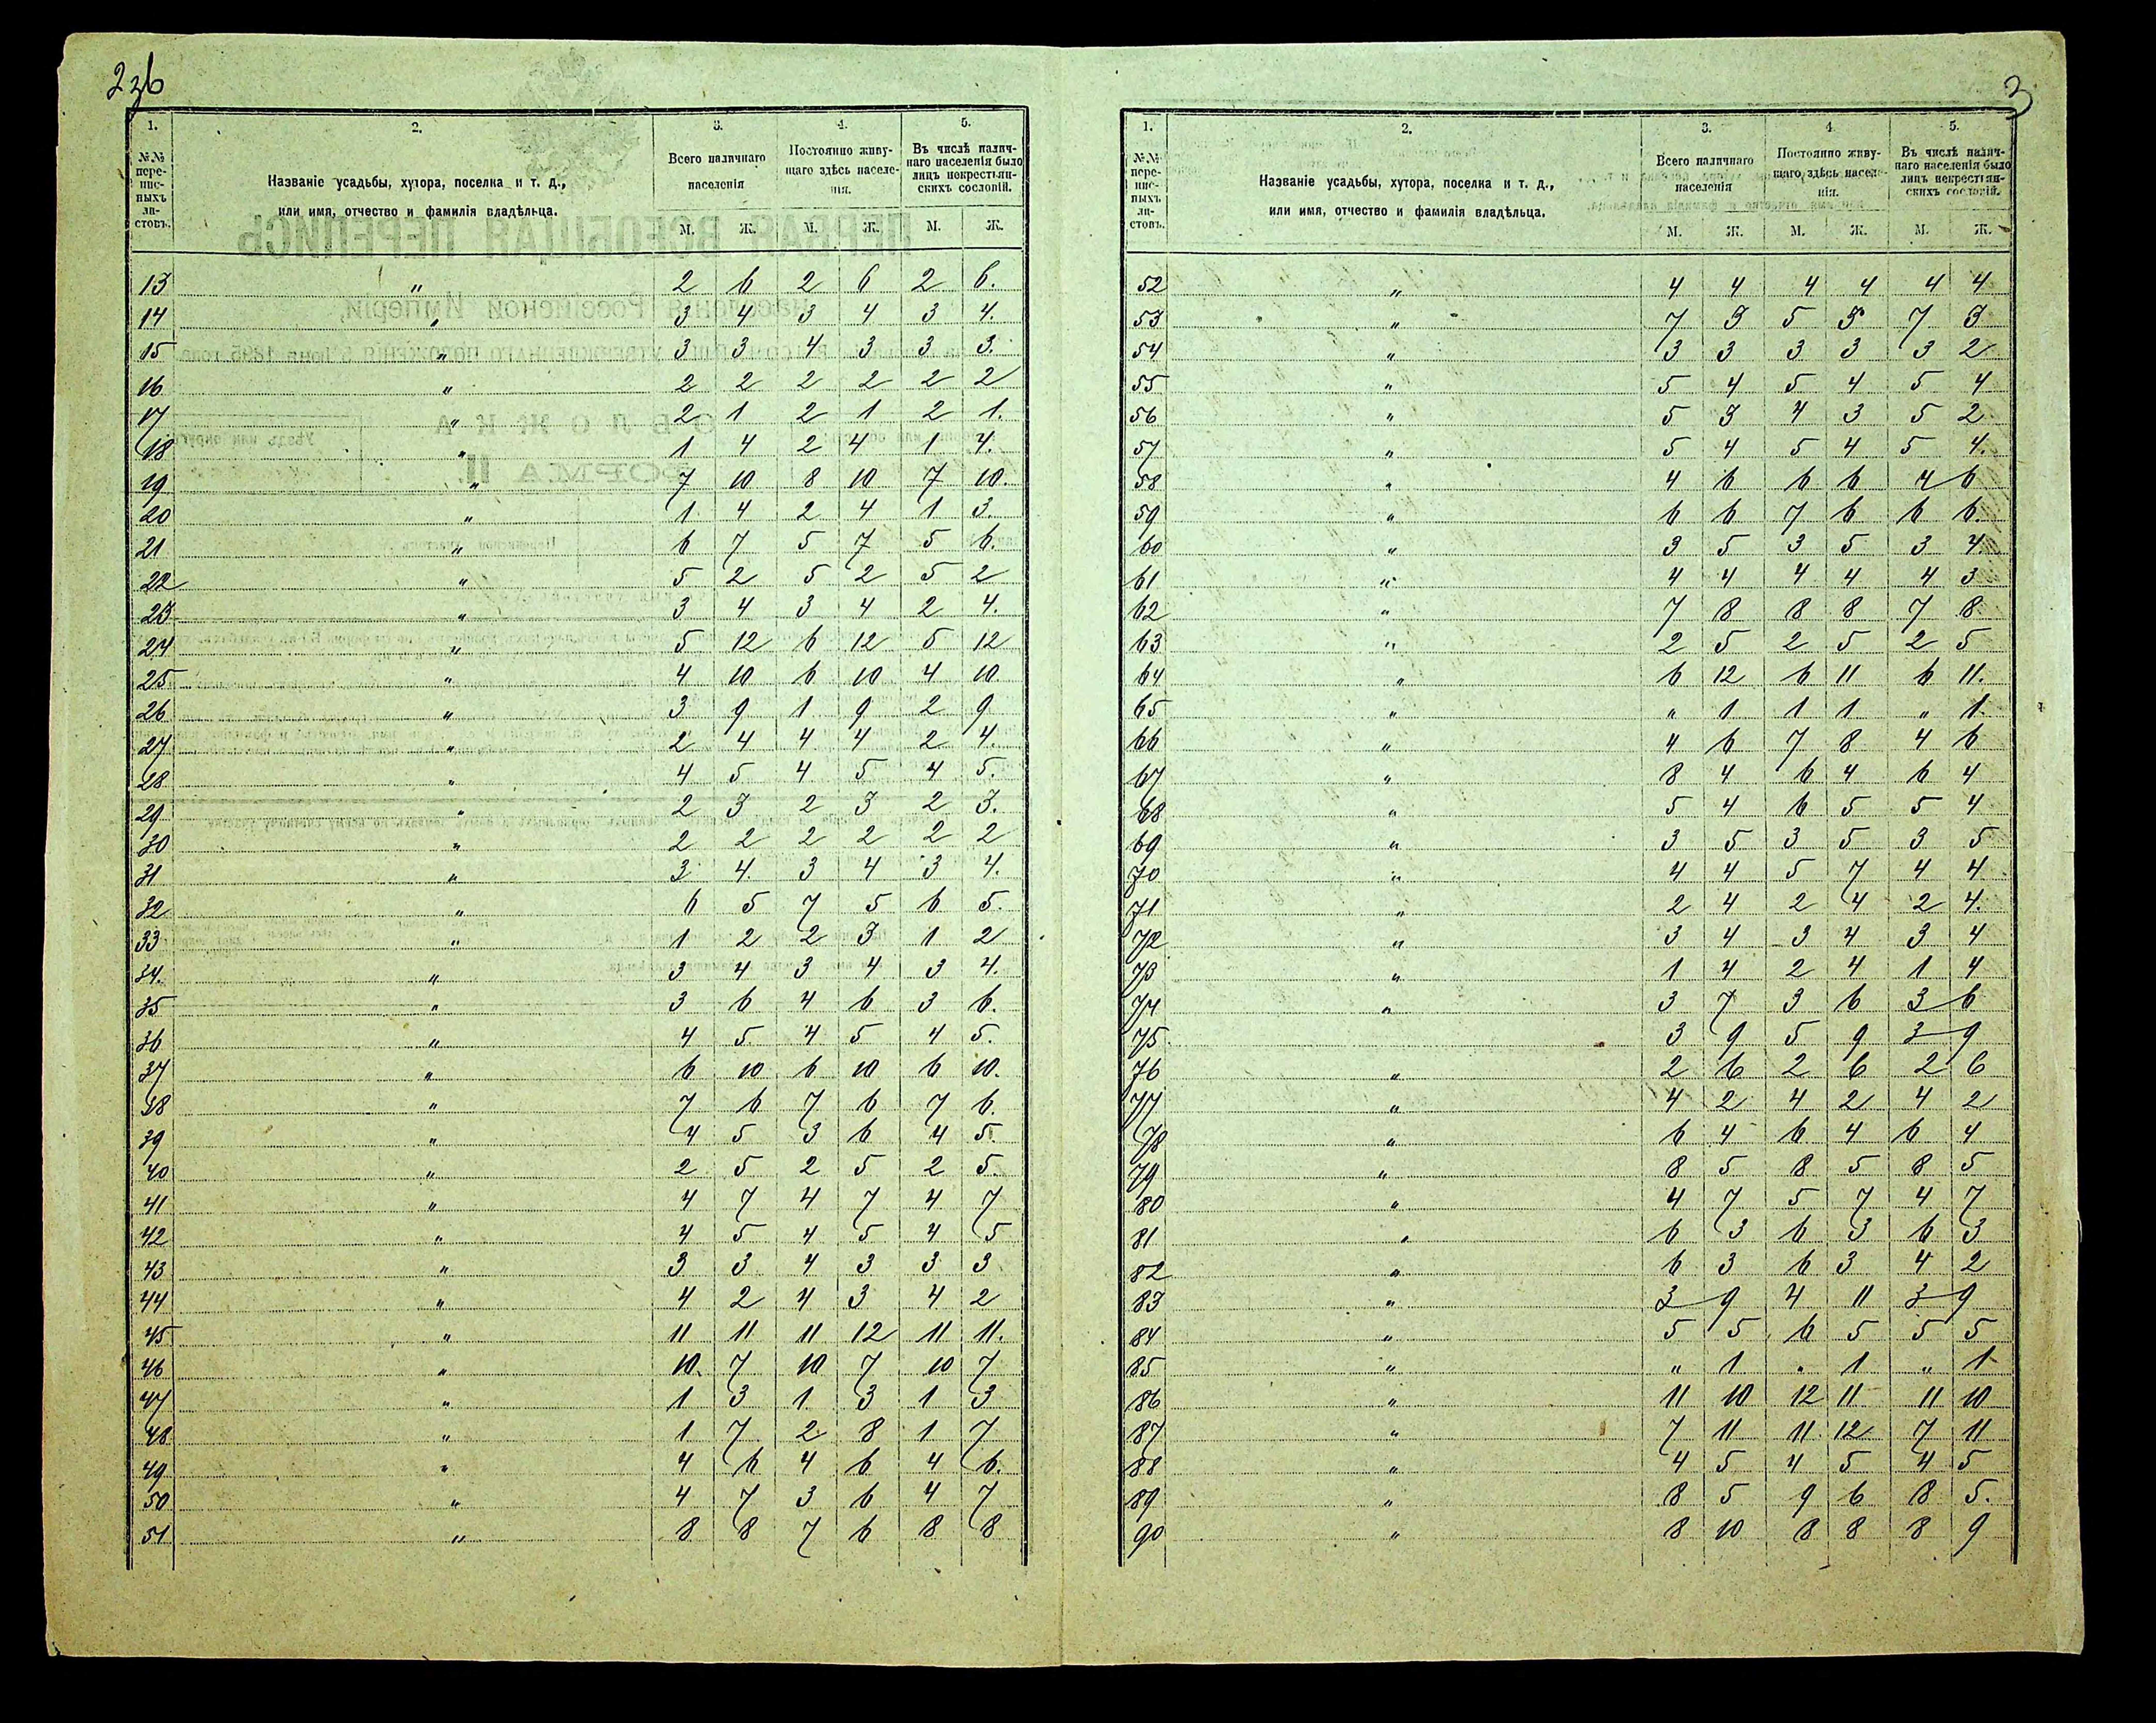 2зб
1. 2. 3. 4. 5.
№№ пере-пис-ныхъ ли-стовъ. Названіе усадьбы, хутора, поселка и т. д., или имя, отчество и фамилія владѣльца. Всего наличнаго населенія Постоянно живу-щаго здѣсь населе-нія. Въ числѣ налич-наго населенія было лицъ некрестьян-скихъ сословій.
М. Ж. М. Ж. М. Ж.
13 " 2 6 2 6 2 6.
14 " 3 4 3 4 3 4.
15 " 3 3 4 3 3 3.
16 " 2 2 2 2 2 2
17 " 2 1 2 1 2 1.
18 " 1 4 2 4 1 4.
19 " 7 10 8 10 7 10.
20 " 1 4 2 4 1 3.
21 " 6 7 5 7 5 6.
22 " 5 2 5 2 5 2
23 " 3 4 3 4 2 4.
24 " 5 12 6 12 5 12
25 " 4 10 6 10 4 10.
26 " 3 9 1 9 2 9
27 " 2 4 4 4 2 4.
28 " 4 5 4 5 4 5.
29 " 2 3 2 3 2 3.
30 " 2 2 2 2 2 2
31 " 3 4. 3 4 3 4.
32 " 6 5 7 5 6 5.
33 " 1 2 2 3 1 2
34. " 3 4 3 4 3 4.
35 " 3 6 4 6 3 6.
36 " 4 5 4 5 4 5.
37 " 6 10 6 10 6 10.
38 " 7 6 7 6 7 6.
39 " 4 5 3 6 4 5.
40 " 2 5 2 5 2 5.
41 " 4 7 4 7 4 7
42 " 4 5 4 5 4 5
43 " 3 3 4 3 3 3
44 " 4 2 4 3 4 2
45 " 11 11 11 12 11 11.
46 " 10. 7 10 7 10 7
47 " 1 3 1 3 1 3
48 " 1 7 2 8 1 7
49 " 4 6 4 6 4 6.
50 " 4 7 3 6 4 7
51 " 8 8 7 6 8 8
3
1. 2. 3. 4 5.
№№ пере-пис-ныхъ ли-стовъ. Названіе усадьбы, хутора, поселка и т. д., или имя, отчество и фамилія владѣльца. Всего наличнаго населенія Постоянно живу-щаго здѣсь населе-нія. Въ числѣ налич-наго населенія было лицъ некрестьян-скихъ сословій.
М. Ж. М. Ж. М. Ж.
52 " 4 4 4 4 4 4
53 " 7 3 5 3 7 3
54 " 3 3 3 3 3 2
55 " 5 4 5 4 5 4
56 " 5 3 4 3 5 2
57 " 5 4 5 4 5 4.
58 " 4 6 6 6 4 6
59 " 6 6 7 6 6 6.
60 " 3 5 3 5 3 4.
61 " 4 4 4 4 4 3
62 " 7 8 8 8 7 8.
63 " 2 5 2 5 2 5
64 " 6 12 6 11 6 11.
65 " " 1 1 1 " 1.
66 " 4 6 7 8 4 6
67 " 8 4 6 4 6 4
68 " 5 4 6 5 5 4
69 " 3 5 3 5 3 5
70 " 4 4 5 7 4 4
71 " 2 4 2 4 2 4.
72 " 3 4 3 4 3 4
73 " 1 4 2 4 1 4
74 " 3 7 3 6 3 6
75. 3 9 5 9 3 9
76 " 2 6 2 6 2 6
77 " 4 2 4 2 4 2
78 " 6 4 6 4 6 4
79 " 8 5 8 5 8 5
80 " 4 7 5 7 4 7
81 " 6 3 6 3 6 3
82 " 6 3 6 3 4 2
83 " 3 9 4 11 3 9
84 " 5 5 6 5 5 5
85 " " 1 " 1 " 1
86 " 11 10 12 11 11 10
87 " 7 11 11. 12 7 11
88 " 4 5 4 5 4 5
89 " 8 5 9 6 8 5.
90 " 8 10 8 8 8 9